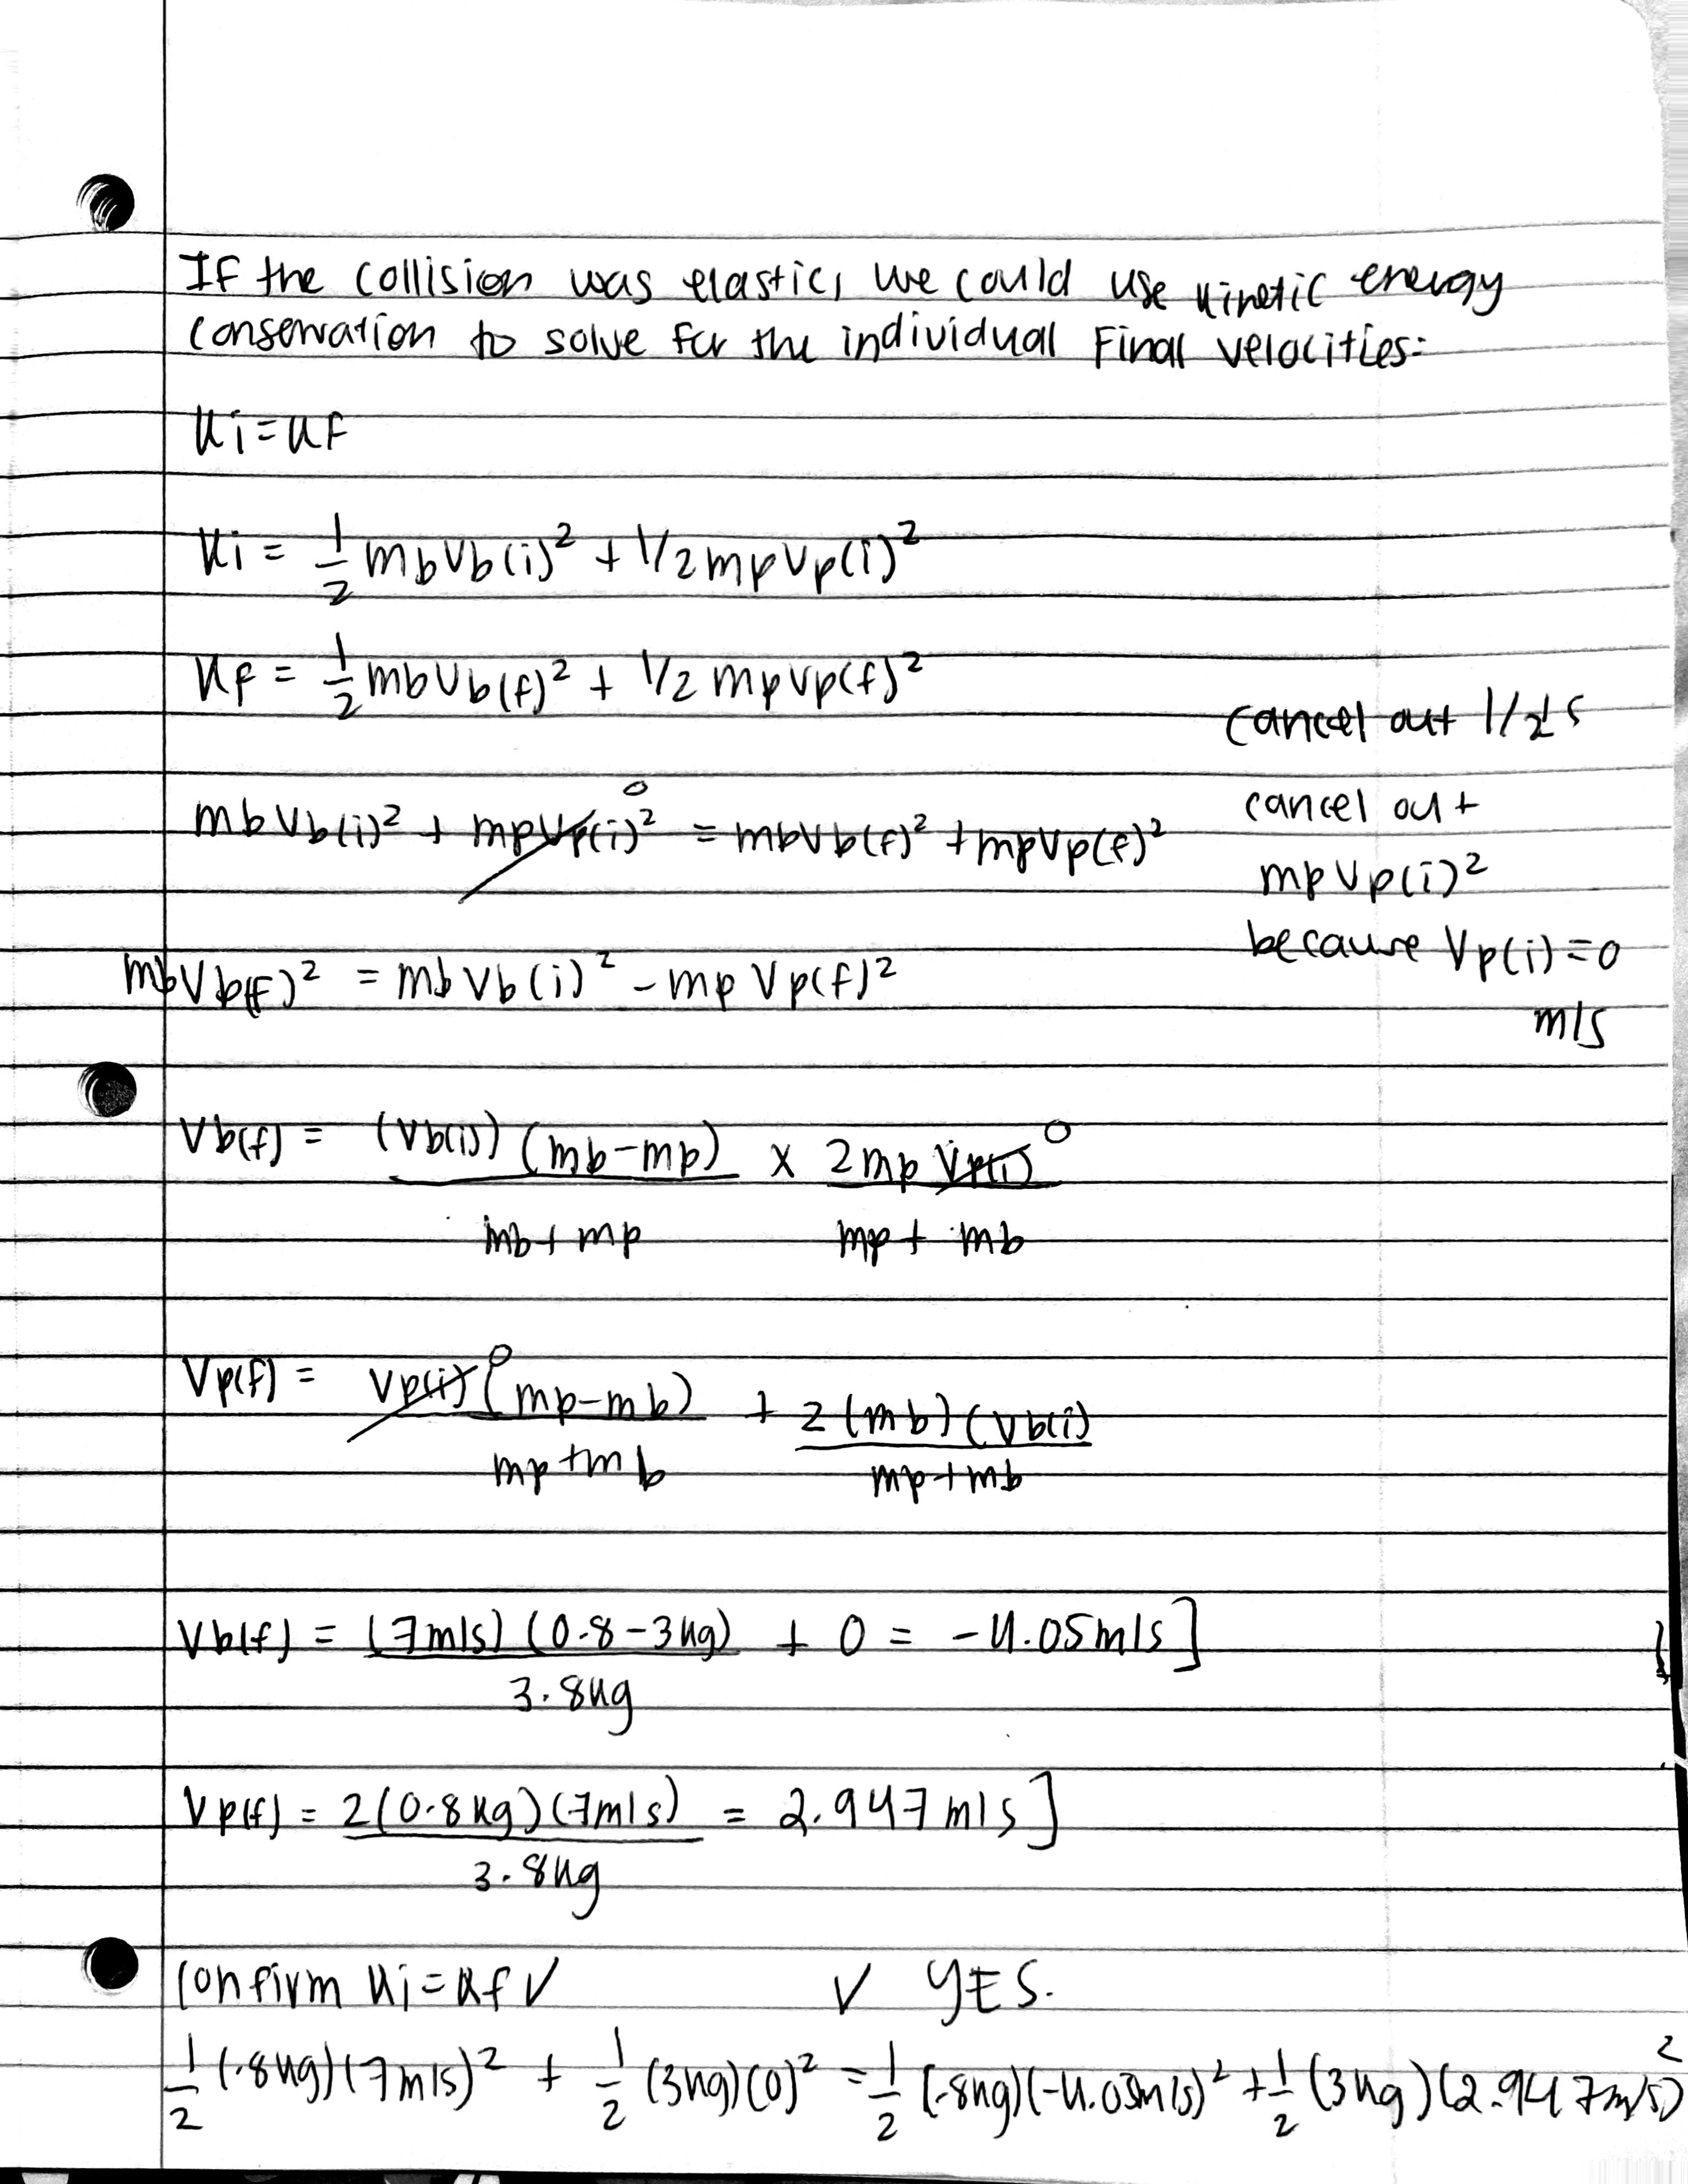 If the collision was elastic, we could use kinetic energy
conservation to solve for the individual final velocities:
Ki = Kf
Ki = 1/2 mbVb(i)² + 1/2 mpVp(i)²
Kf = 1/2 mbVb(f)² + 1/2 mpVp(f)²
cancel out 1/2's
mbVb(i)² + mpVp(i)² 0 = mbVb(f)² + mpVp(f)²
cancel out
mpVp(i)²
because Vp(i) = 0
m/s
mbVb(f)² = mbVb(i)² - mpVp(f)²
Vb(f) = (Vb(i)) (mb-mp) x 2mp Vp(i) 0
mb + mp mp + mb
Vp(f) = Vp(i) 0 (mp-mb) + 2(mb)(Vb(i)
mp+mb mp+mb
Vb(f) = (7m/s) (0.8-3kg) + 0 = -4.05m/s]
3.8kg
Vp(f) = 2(0.8kg)(7m/s) = 2.947m/s]
3.8kg
confirm Ki = Kf √ √ YES.
1/2 (.8kg)(7m/s)² + 1/2 (3kg)(0)² = 1/2 (.8kg)(-4.05m/s)² + 1/2 (3kg)(2.947m/s)²